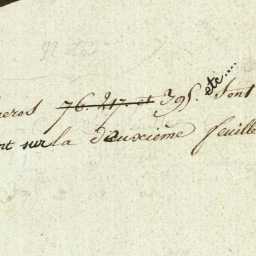 meros 76. 217. et 395. etc..... sont
nt sur la deuxième feuille